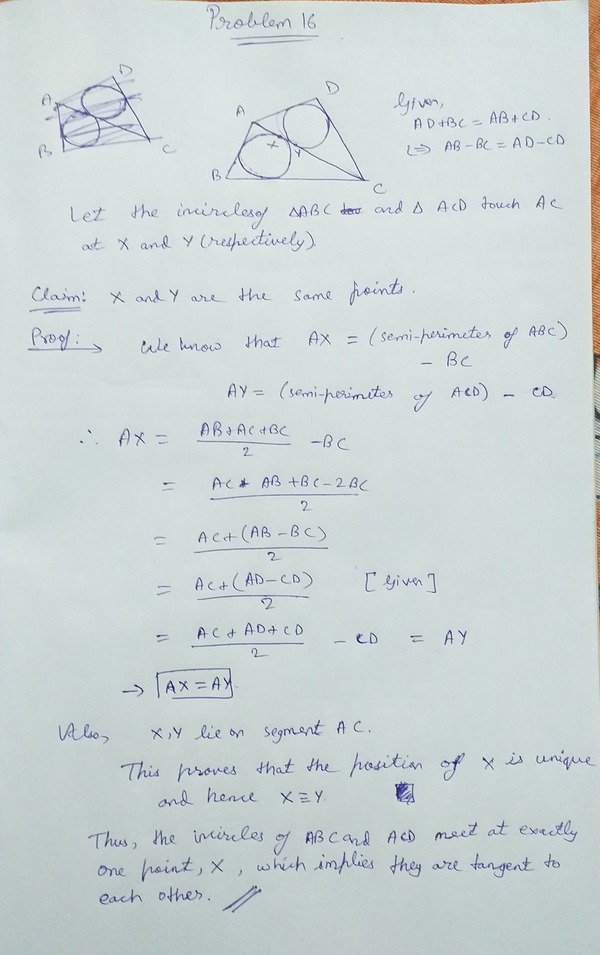 Problem 16
D
A
B
C
D
A
X
Y
B
C
Given,
AD+BC = AB+CD.
⇒ AB-BC = AD-CD
Let the incircles of ΔABC and Δ ACD touch AC
at X and Y (respectively)
Claim: X and Y are the same points.
Proof: → We know that AX = (semi-perimetes of ABC)
- BC
AY = (semi-perimetes of ACD) - CD
∴ AX = (AB+AC+BC)/2 - BC
= (AC + AB + BC - 2BC)/2
= (AC+(AB-BC))/2
= (AC+(AD-CD))/2 [Given]
= (AC+AD+CD)/2 - CD = AY
→ AX = AY
Also, X,Y lie on segment AC.
This proves that the position of X is unique
and hence X≡Y.
Thus, the incircles of ABC and ACD meet at exactly
one point, X, which implies they are tangent to
each other.